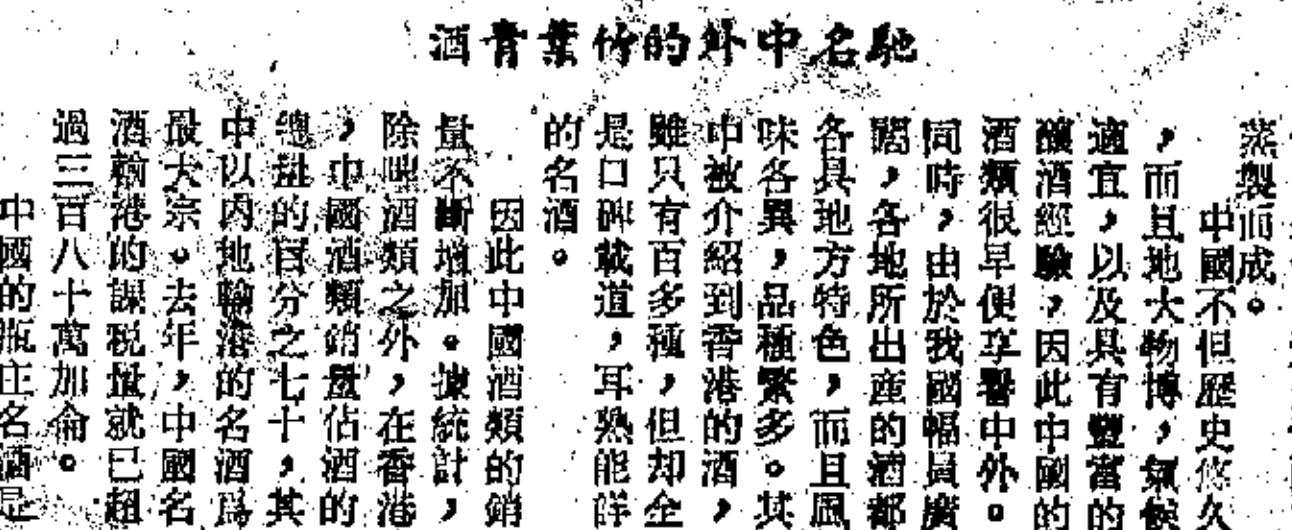 馳名中外的竹葉青酒
蒸製而成。
中國不但歷史悠久
，而且地大物博，氣候
適宜，以及具有豐富的
釀酒經驗，因此中國的
酒類很早便享譽中外。
同時，由於我國幅員廣
闊，各地所出產的酒都
各具地方特色，而且風
味各異，品種繁多。其
中被介紹到香港的酒，
雖只有百多種，但却全
是口碑載道，耳熟能詳
的名酒。
因此中國酒類的銷
量不斷增加。據統計，
除啤酒類之外，在香港
，中國酒類銷量佔酒的
總量的百分之七十，其
中以內地輸港的名酒爲
最大宗。去年，中國名
酒輸港的課税量就已超
過三百八十萬加侖。
中國的瓶庄名酒是